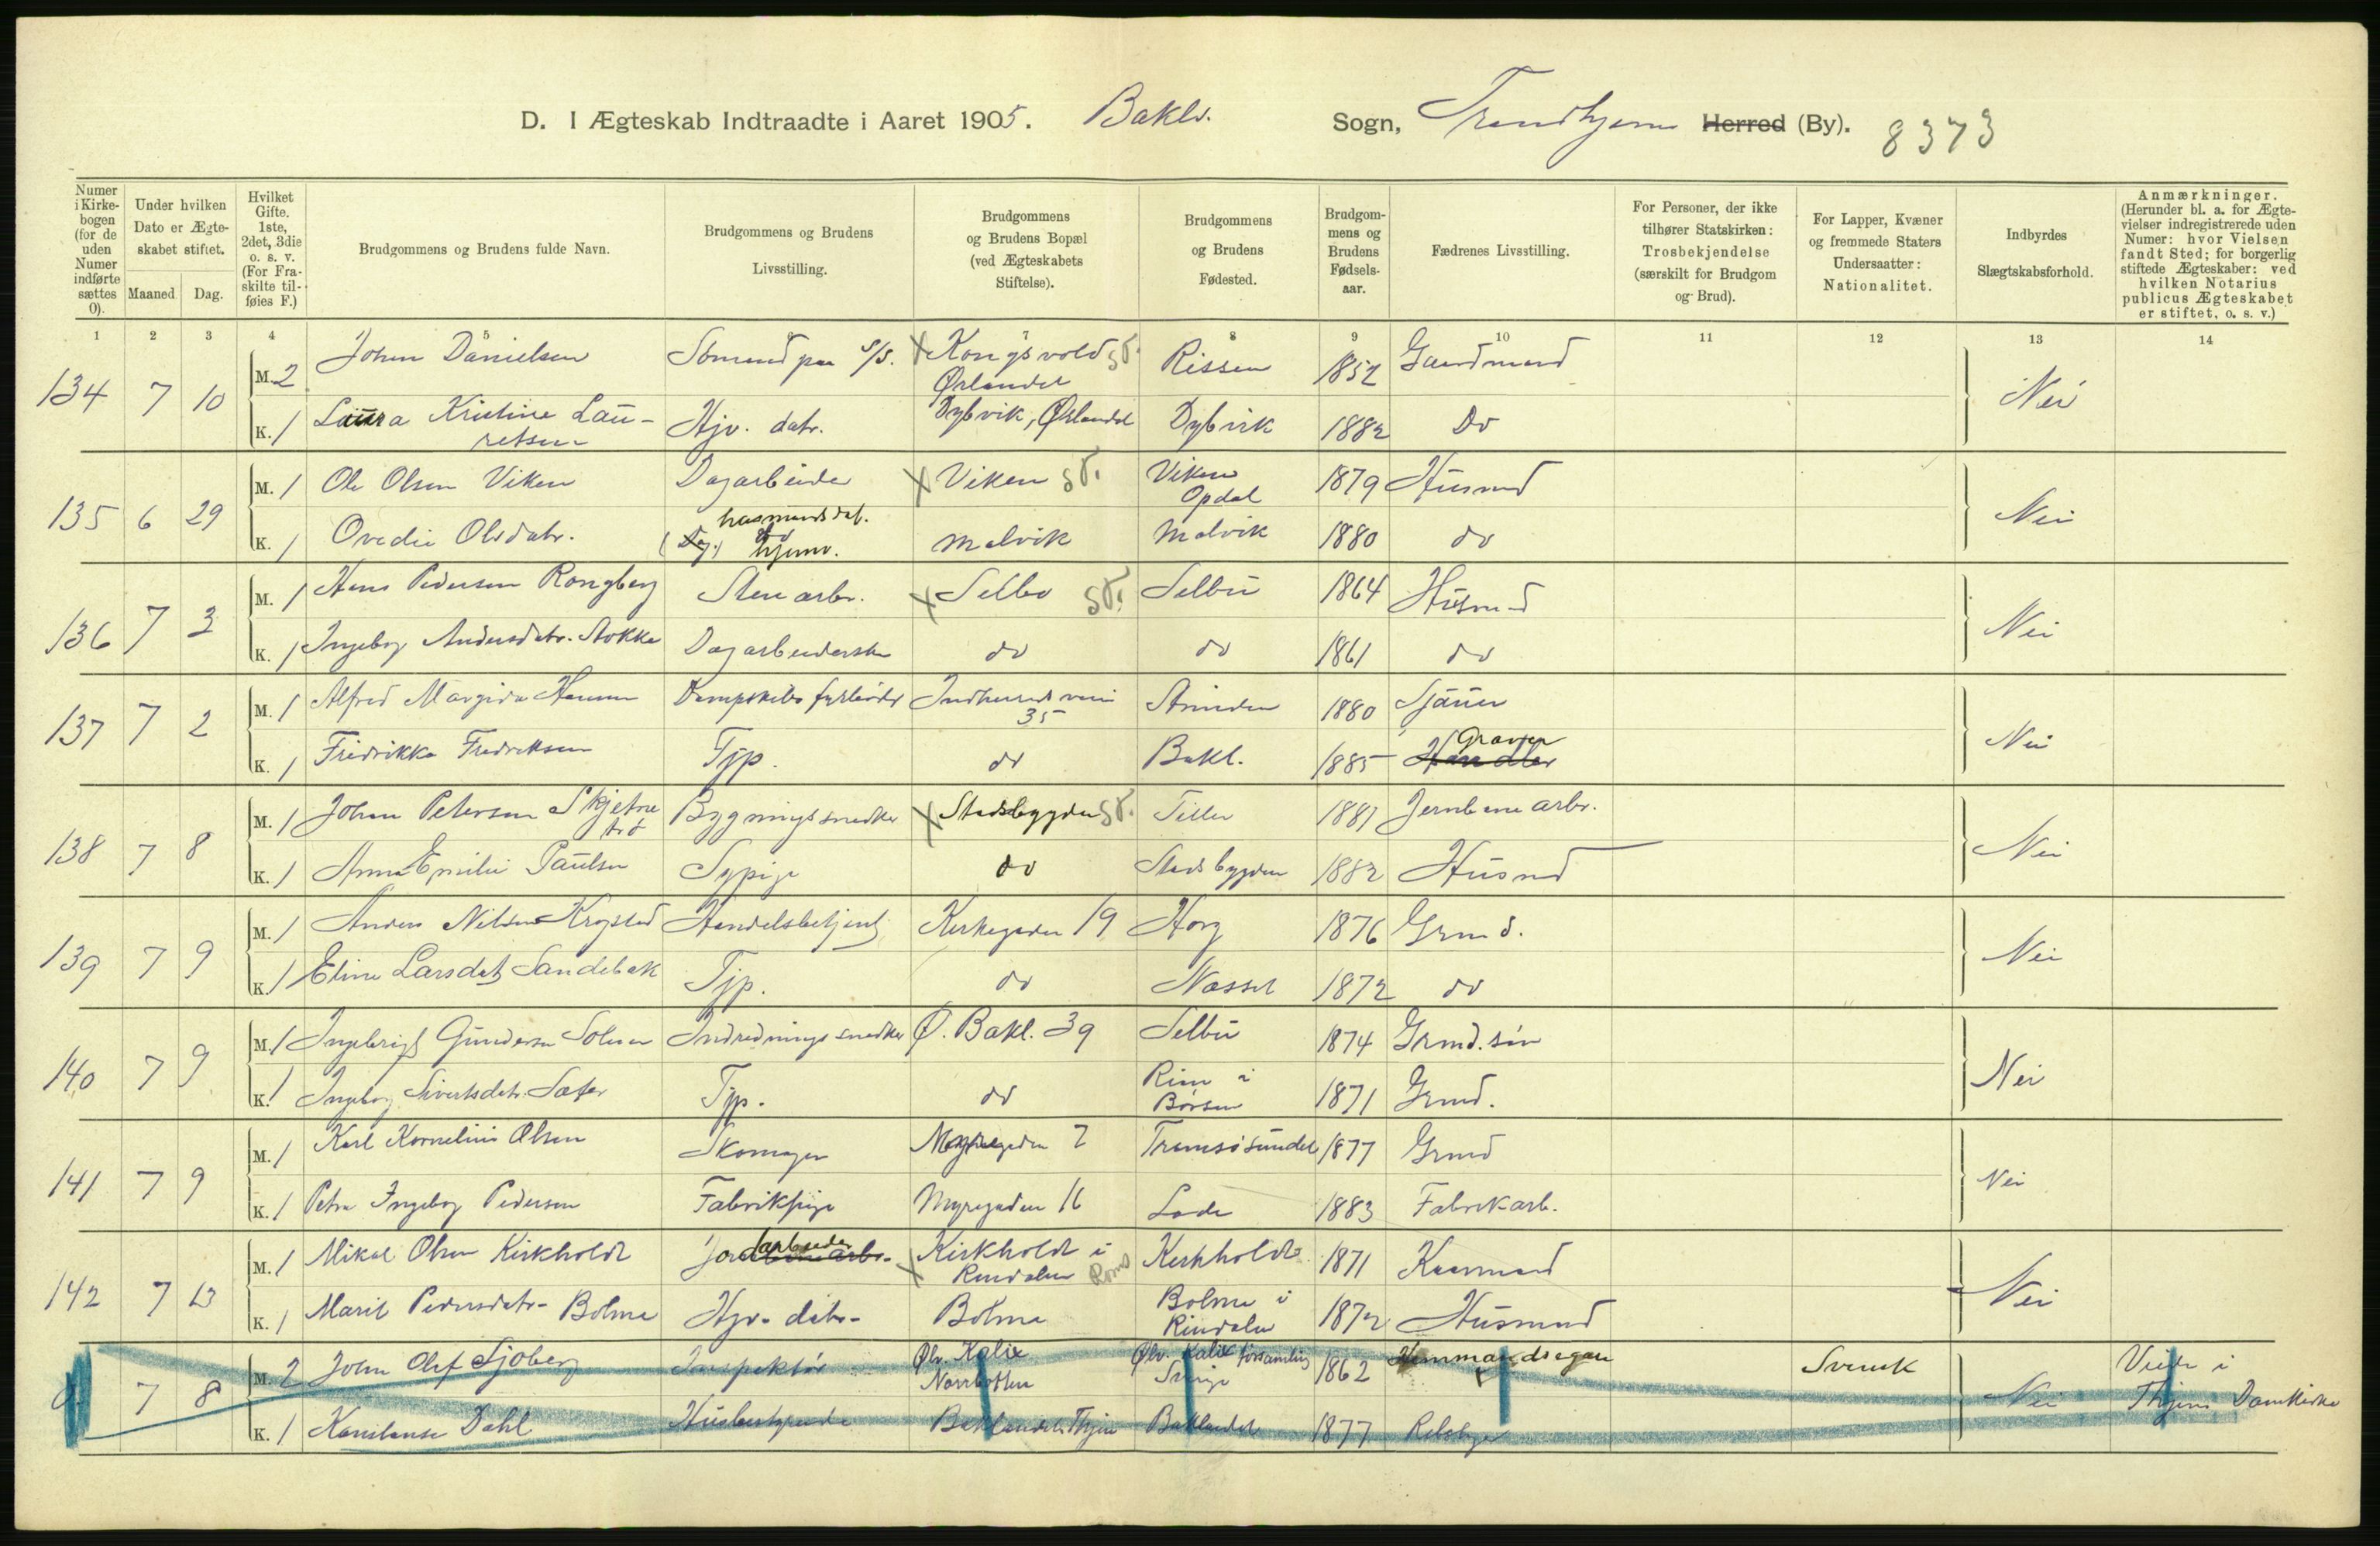 D. I Ægteskab Indtraadte i Aaret 1905. Bakl. Sogn, Trondhjem Herred (By). 8373
Numer i Kirkebogen (for de uden Numer indførte sættes 0).
Under hvilken Dato er Ægteskabet stiftet. Maaned Dag.
Hvilket Gifte. 1ste, 2det, 3die o. s. v. (For Fraskilte tilføies F.)
Brudgommens og Brudens fulde Navn.
Brudgommens og Brudens Livsstilling.
Brudgommens og Brudens Bopæl (ved Ægteskabets Stiftelse).
Brudgommens og Brudens Fødested.
Brudgommens og Brudens Fødselsaar.
Fædrenes Livsstilling.
For Personer, der ikke tilhører Statskirken: Trosbekjendelse (særskilt for Brudgom og Brud).
For Lapper, Kvæner og fremmede Staters Undersaatter: Nationalitet.
Indbyrdes Slægtskabsforhold.
Anmærkninger. (Herunder bl. a. for Ægtevielser indregistrerede uden Numer: hvor Vielsen fandt Sted; for borgerlig stiftede Ægteskaber: ved hvilken Notarius publicus Ægteskabet er stiftet, o. s. v.)
1 2 3 4 5 6 7 8 9 10 11 12 13 14
134 7 10 M. 2 Johan Danielsen Sømand paa S/S. Kongsvold Ørlandet Rissen 1852 Gaardmand Nei
K. 1 Laura Kristine Lauretsen Hjv. datr. Dybvik, Ørlandet Dybvik 1882 Do
135 6 29 M. 1 Ole Olsen Viken Dagarbeider Viken St. Viken Opdal 1879 Husmd Nei
K. 1 Ovedie Olsdatr. husmandsdat. hjemv. Malvik Malvik 1880 do
136 7 3 M. 1 Hans Pedersen Rongberg Stenarbr. Selbo St. Selbu 1864 Husmd Nei
K. 1 Ingebog Andersdatr. Stokke Dagarbeiderske do do 1861 do
137 7 2 M. 1 Alfred Margido Hansen Dampskibs fyrbøder Indherredsveien 35 Strinden 1880 Sjauer Nei
K. 1 Fredrikke Fredriksen Tjp. do Bakl. 1885 Handler Graver
138 7 8 M. 1 Johan Petersen Skjetne Bygningssnedker Stadsbygden St. Tiller 1881 Jernbanearbr. Nei
K. 1 Anna Emilie Paulsen Sypige do Stadsbygden 1882 Husmd
139 7 9 M. 1 Anders Nilsen Krogstad Handelsbetjent Kirkegaden 19 Horg 1876 Grmd. Nei
K. 1 Eline Larsdat. Sandebak Tjp. do Næsset 1872 do
140 7 9 M. 1 Ingebrigt Gundersen Solem Indredningssnedker Ø. Bakl. 39 Selbu 1874 Grmd. søn Nei
K. 1 Ingebog Sivertsdatr. Sæter Tjp. do Rim i Børsen 1871 Grmd.
141 7 9 M. 1 Karl Kornelius Olsen Skomager Myregaden 7 Tromsøsundet 1877 Grmd Nei
K. 1 Petra Ingebog Pedersen Fabrikpige Myregaden 16 Lade 1883 Fabrikarb.
142 7 13 M. 1 Mikal Olsen Kirkholdt Jordarbeider Kirkholdt i Rindalen Roms Kirkholdt 1871 Kaarmand Nei
K. 1 Marit Pedersdatr. Bolme Hjv. datr. Bolme Bolme i Rindalen 1872 Husmand
0 7 8 M. 2 John Olof Sjøberg Inspektør Ølv. Kalix Norrbotten Ølv. Kalix församling Sverige 1862 Hemmandsegare Svensk Nei Viede i Thjems Domkirke
K. 1 Konstanse Dahl Husbestyrende Baklandet Thjem Baklandet 1877 Rebslager